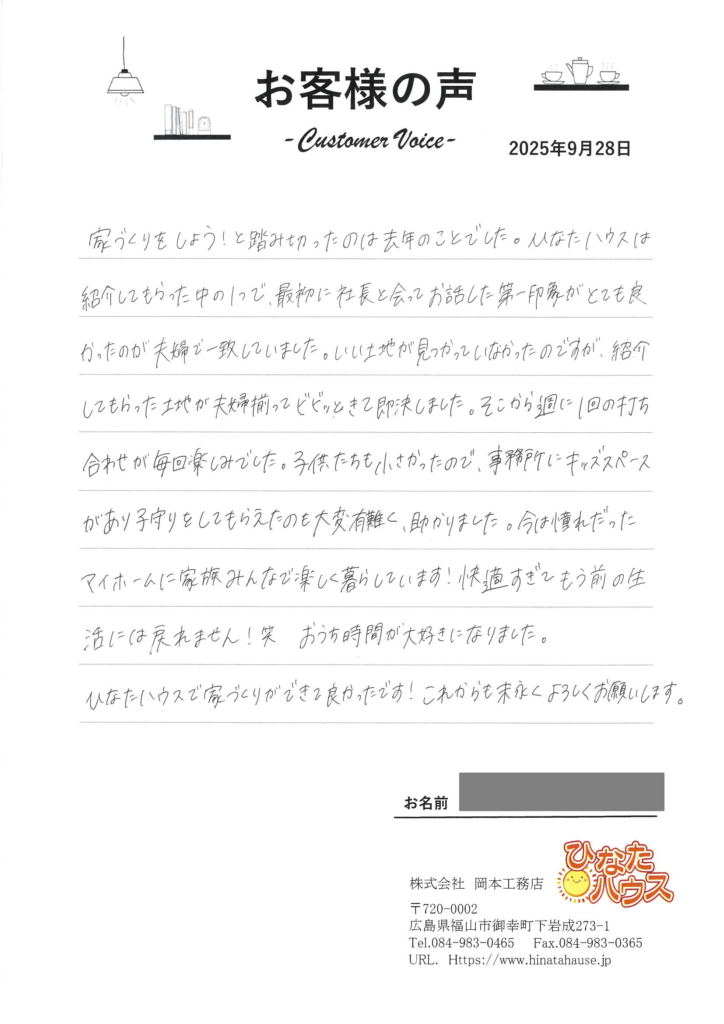 お客様の声
-Customer Voice-
2025年9月28日
家づくりをしよう!と踏み切ったのは去年のことでした。ひなたハウスは
紹介してもらった中の1つで、最初に社長と会ってお話した第一印象がとても良
かったのが夫婦で一致していました。いい土地が見つかっていなかったのですが、紹介
してもらった土地が夫婦揃ってビビッときて即決しました。そこから週に1回の打ち
合わせが毎回楽しみでした。子供たちも小さかったので、事務所にキッズスペース
があり子守りをしてもらえたのも大変有難く、助かりました。今は憧れだった
マイホームに家族みんなで楽しく暮らしています!快適すぎてもう前の生
活には戻れません!笑 おうち時間が大好きになりました。
ひなたハウスで家づくりができて良かったです!これからも末永くよろしくお願いします。
お名前
ひなた
ハウス
株式会社 岡本工務店
〒720-0002
広島県福山市御幸町下岩成273-1
Tel.084-983-0465 Fax.084-983-0365
URL. Https://www.hinatahause.jp